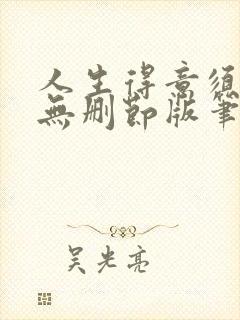 人生得意须
無删節版筆
吴光亮